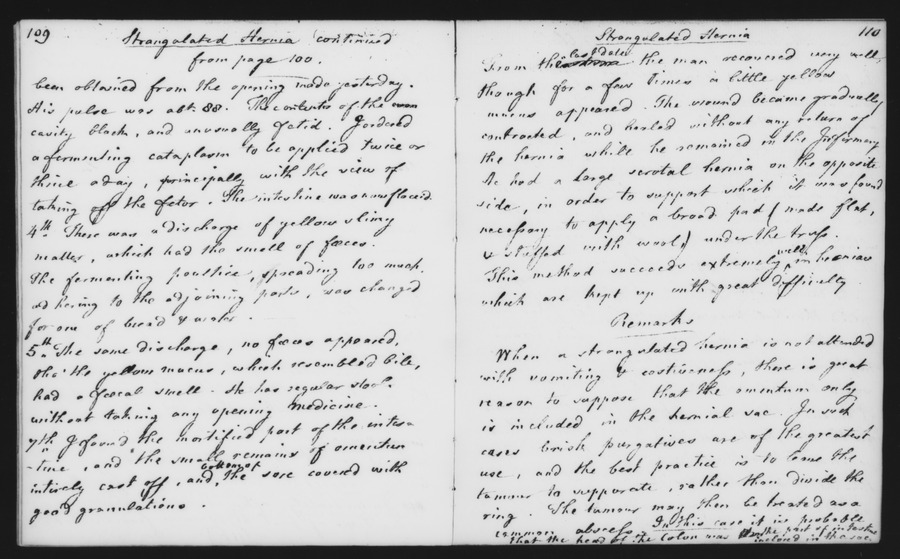 109
Strangulated Hernia continued
from page 100.
been obtained from the opening made yesterday.
His pulse was abt. 88. The contents of the
cavity black, and unusually fetid. I ordered
a fermenting cataplasm to be applied twice or
thrice a day, principally with the view of
taking off the fetor. The intestine was
4th There was a discharge of yellow slimy
matter, which had the smell of fæces.
The fermenting poultice, spreading too much,
adhering to the adjoining parts, was changed
for one of bread & water.
5th The same discharge, no fæces appeared,
tho' the yellow mucus, which resembled bile,
had a fæcal smell. He has regular stools
without taking any opening medicine.
7th I found the mortified part of the intes-
-tine, and the small remains of omentum
intirely cast off, and, the bottom of sore covered with
good granulations.
110
Strangulated Hernia
From the last date the man recovered very well
though for a few times a little yellow
mucus appeared. The wound became gradually
contracted, and healed without any return of
the hernia while he remained in the Infirmary
He had a large scrotal hernia on the opposite
side, in order to support which it was found
necessary to apply a broad pad (made flat,
& stuffed with wool) under the truss.
This method succeeds extremely well in hernias
which are kept up with great difficulty.
Remarks
When a strangulated hernia is not attended
with vomiting & costiveness, there is great
reason to suppose that the omentum only
is included in the hernial sac. In such
cases brisk purgatives are of the greatest
use, and the best practice is to leave the
tumour to suppurate, rather than divide the
ring. The tumour may then be treated as a
common abscess. In this case it is probable
that the head of the Colon was the part of intestine
inclosd in the sac.